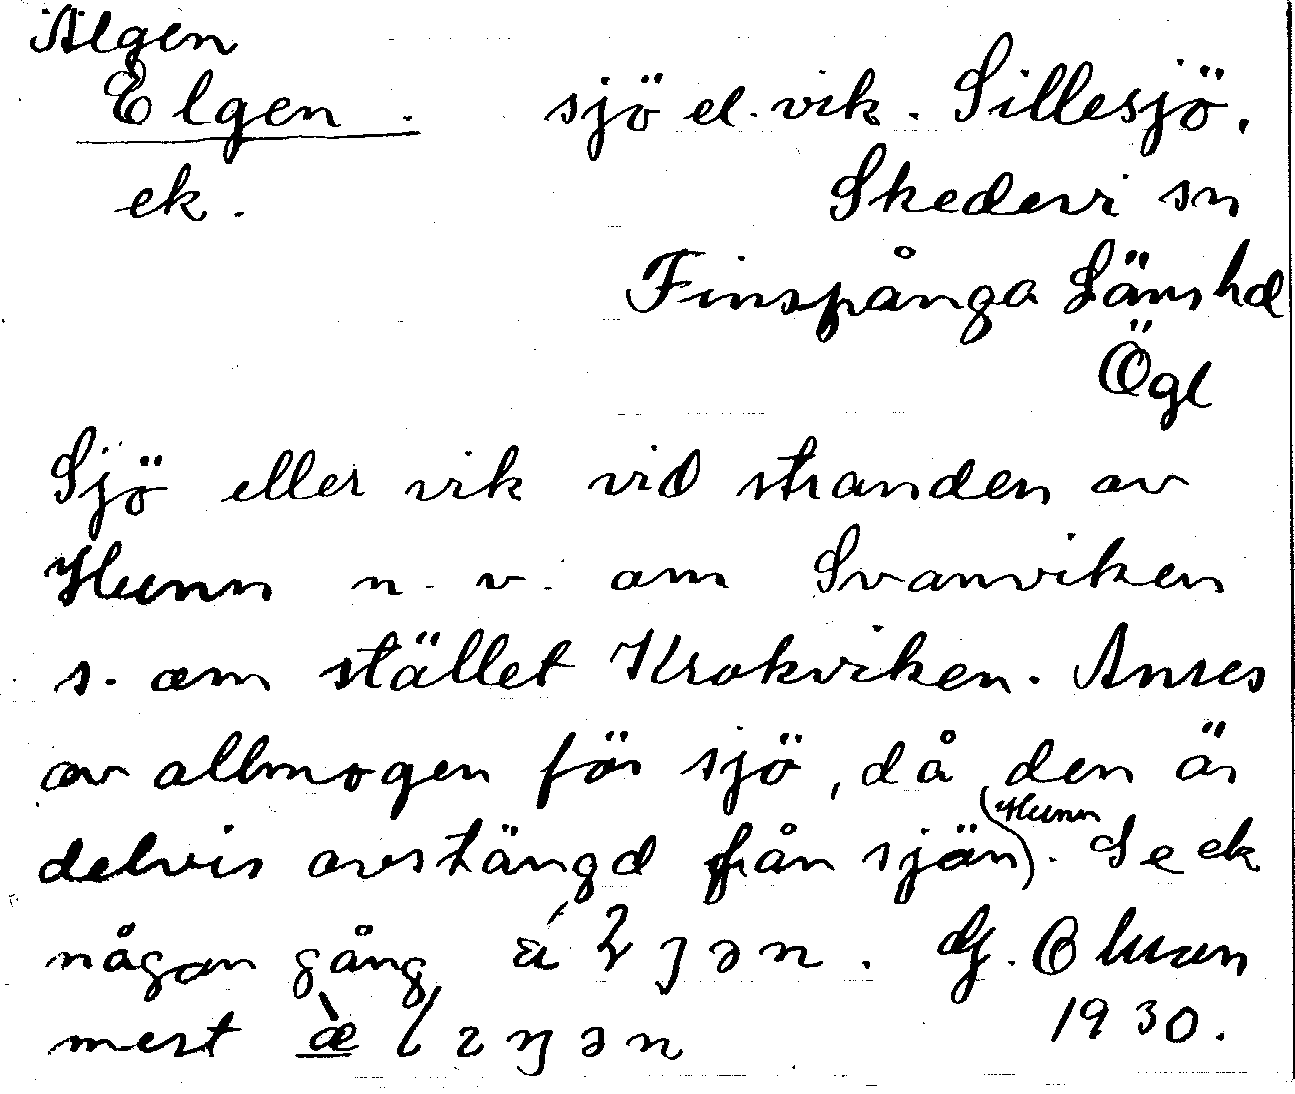 Älgen
Elgen. sjö el. vik. Sillesjö.
ek. Skedevi sn
Finspånga Länshd
Ögl
Sjö eller vik vid stranden av
Hunn n. v. om Svanviken
s. om stället Krokviken. Anses
av allmogen för sjö, då den är
delvis avstängd från sjön (Hunn). Se ek
någon gång G. Olsson
mest 1930.